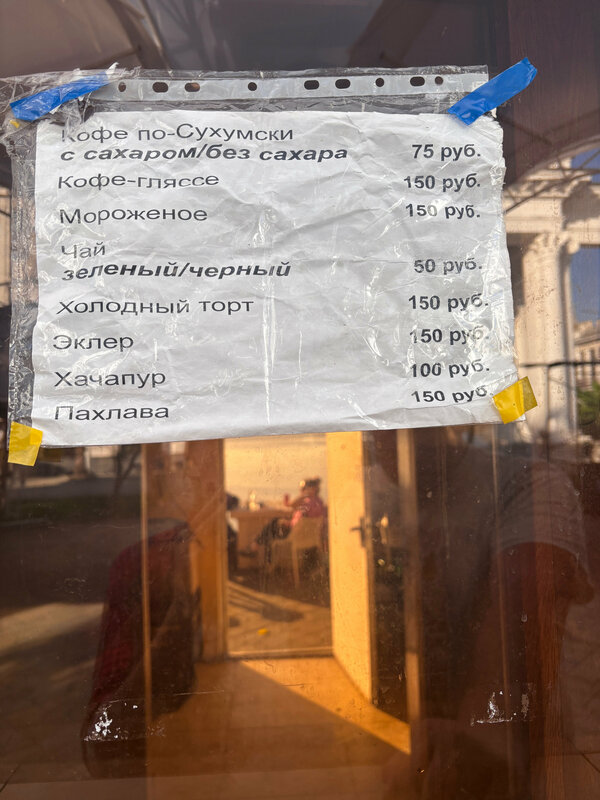 Кофе по-Сухумски
с сахаром/без сахара 75 руб.
Кофе-гляссе 150 руб.
Мороженое 150 руб.
Чай
зеленый/черный 50 руб.
Холодный торт 150 руб.
Эклер 150 руб.
Хачапур 100 руб.
Пахлава 150 руб.